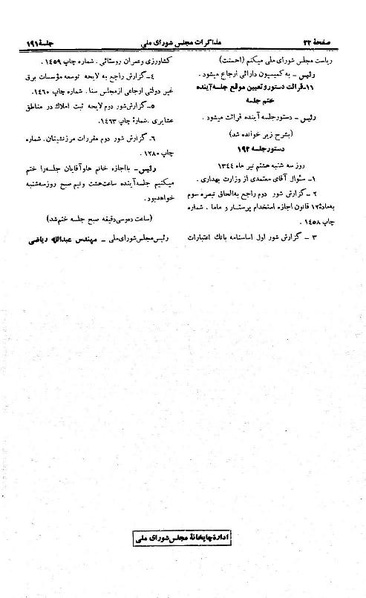 صفحهٔ ۲۲ مذاکرات مجلس شورای ملی جلسهٔ ۱۹۱
ریاست مجلس شورای ملی میکنم (احسنت)
رئیس - به کمیسیون دارائی ارجاع میشود.
۱۱- قرائت دستور و تعیین موقع جلسه آینده
ختم جلسه
رئیس - دستور جلسه آینده قرائت میشود.
(بشرح زیر خوانده شد)
دستور جلسه ۱۹۲
روز سه شنبه هشتم تیر ماه ۱۳۴۴
۱- سئوال آقای معتمدی از وزارت بهداری.
۲- گزارش شور دوم راجع به الحاق تبصره سوم
بماده ۱۲ قانون اجازه استخدام پرستار و ماما. شماره
چاپ ۱۴۵۸.
۳ - گزارش شور اول اساسنامه بانک اعتبارات
کشاورزی و عمران روستائی. شماره چاپ ۱۴۵۹
۴- گزارش راجع به لایحه توسعه مؤسسات برق
غیر دولتی ارجاعی از مجلس سنا. شماره چاپ ۱۴۶۰
۵- گزارش شور دوم لایحه ثبت املاک در مناطق
عشایری. شمارهٔ چاپ ۱۴۶۳
۶. گزارش شور دوم مقررات مرزنشینان. شماره
چاپ ۱۲۸۰
رئیس - با اجازه خانم ها و آقایان جلسه را ختم
میکنیم جلسه آینده ساعت هشت و نیم صبح روز سه شنبه
خواهد بود.
(ساعت ده و سی دقیقه صبح جلسه ختم شد)
رئیس مجلس شورای ملی - مهندس عبدالله ریاضی
اداره چاپخانهٔ مجلس شورای ملی